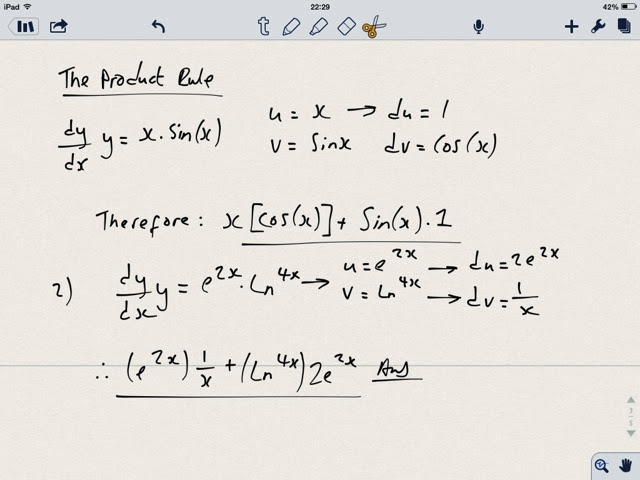 iPad 22:29 42%
The Product Rule
dy/dx y = x · Sin(x) u = x → du = 1
v = Sinx dv = Cos(x)
Therefore: x [Cos(x)] + Sin(x) · 1
2) dy/dx y = e^2x · Ln^4x → u = e^2x → du = 2e^2x
v = Ln^4x → dv = 1/x
∴ (e^2x) 1/x + (Ln^4x) 2e^2x Ans